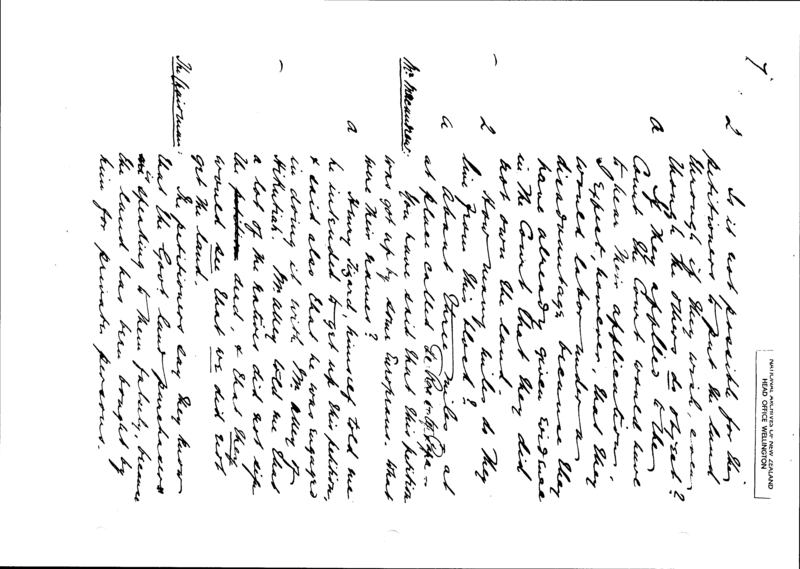 7.
Q Is it not possible for the
petitioners to put the land
through if they wish, even
though the others do object?
a If they applied to the
Court the Court would have
to hear their application.
I expect, however, that they
would labor under a
disadvantage because they
have already given evidence
in the Court that they did
not own the land.
Q How many miles do they
live from this block?
a About three miles at
at place called
Mr. Macandrew: You have said that this petition
was got up by some Europeans. What
were their names?
a Henry Izard, himself told me
he intended to get up this petition,
& said also that he was engaged
in doing it with Mr. Alley of
Hikutaia. Mr Alley told me that
a lot of the natives did not sign
the and, & that they
would see that we did not
get the land.
The Chairman: The petitioners say they know
that the Govt land purchase
speaking to them falsely, because
the land has been bought by
him for private persons.
NATIONAL ARCHIVES OF NEW ZEALAND
HEAD OFFICE WELLINGTON